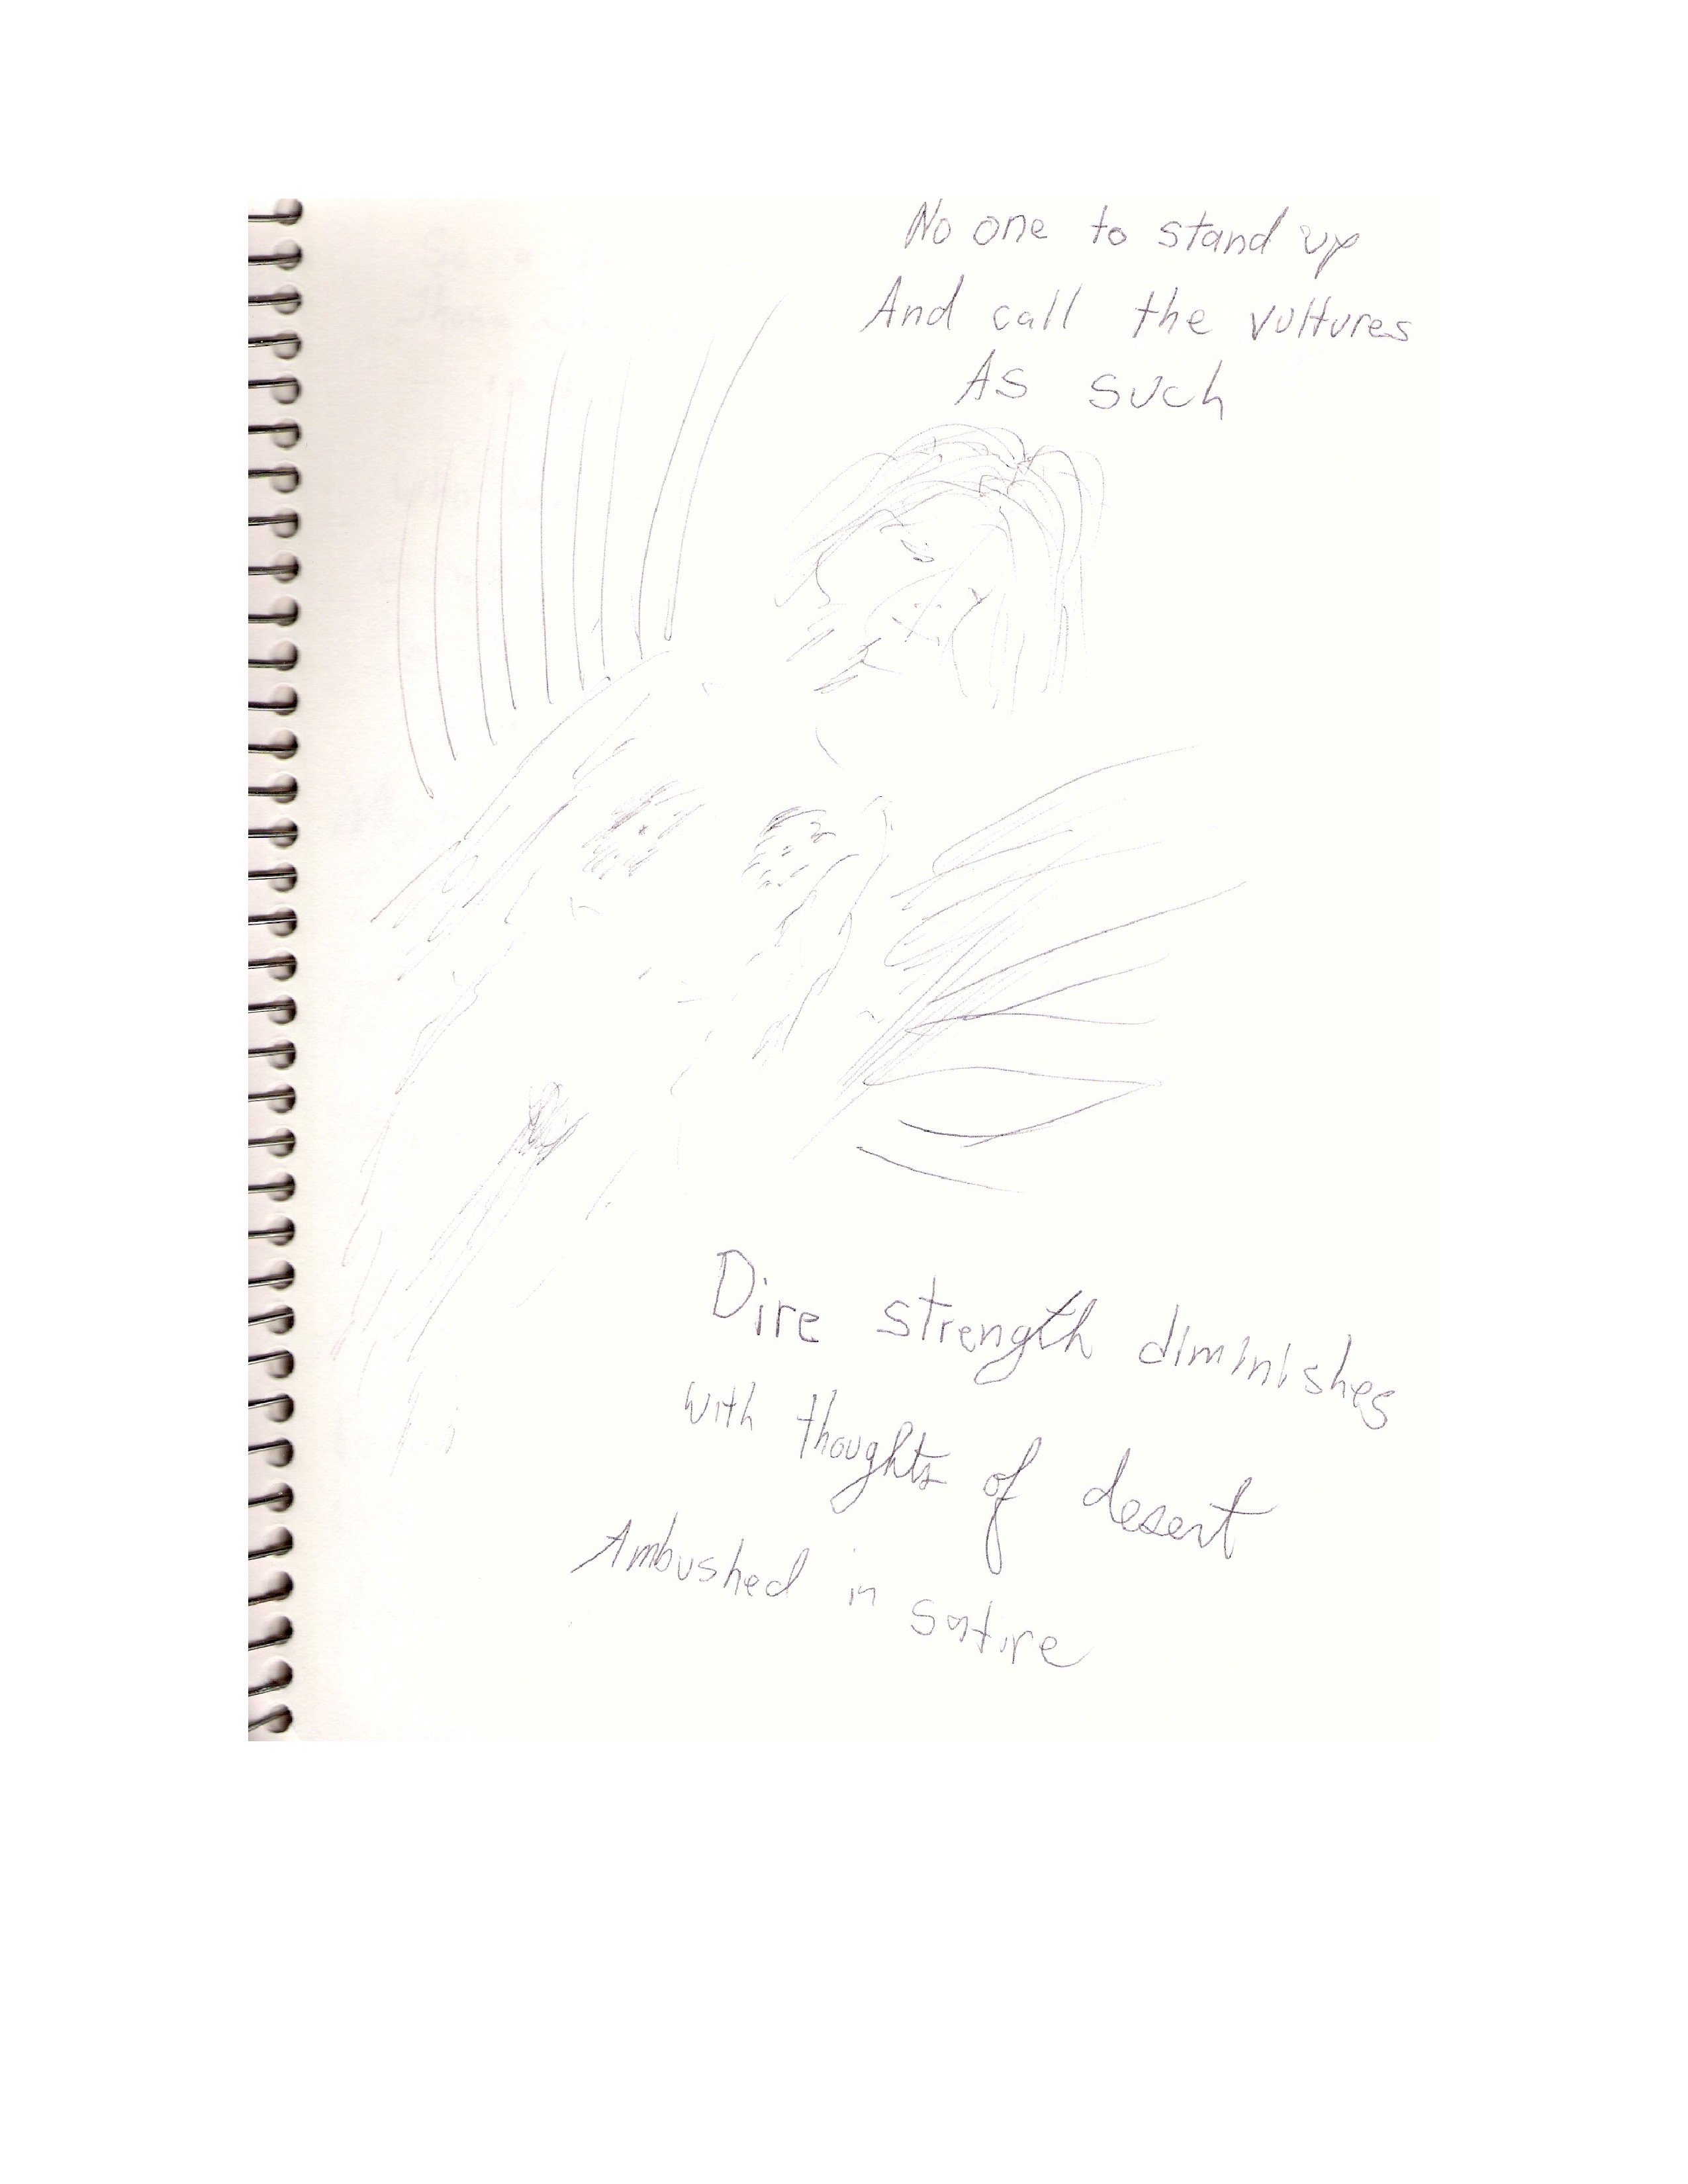 No one to stand up
And call the vultures
As such
Dire strength diminishes
with thoughts of desert
Ambushed in satire